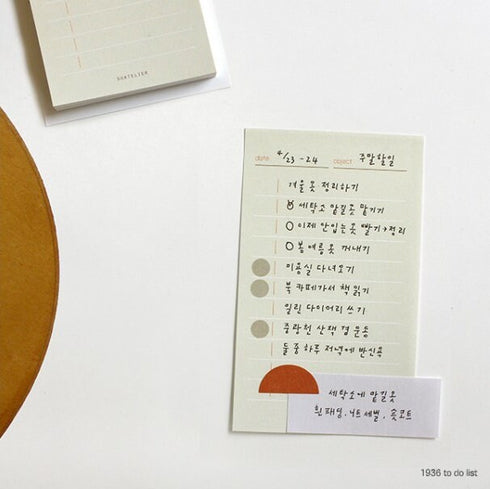 SHATELIER
date 4/23 - 24 object 주말할일
겨울옷 정리하기
세탁소 맡길옷 맡기기
이제 안입는 옷 빨기→정리
봄 여름옷 꺼내기
미용실 다녀오기
북카페가서 책 읽기
밀린 다이어리 쓰기
중랑천 산책 겸 운동
둘중 하루 저녁에 반신욕
세탁소에 맡길옷
흰패딩, 니트 세벌, 롱코트
1936 to do list